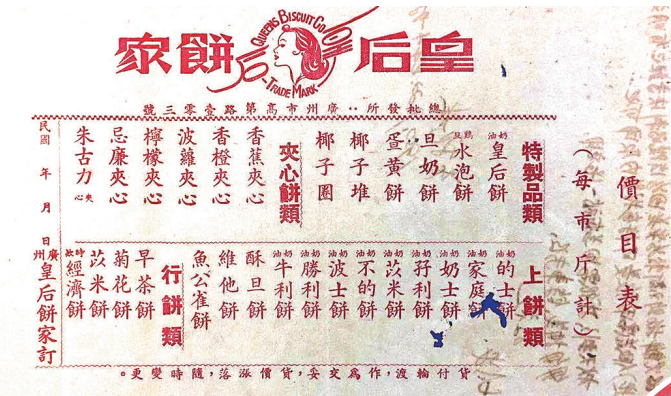 皇后餅家
QUEENS BISCUIT CO
TRADE MARK
總批發所：廣州市高第路壹零三號
價目表
（每市斤計）
特製品類
奶油皇后餅
鷄旦水泡餅
旦奶餅
蛋黃餅
椰子堆
椰子圈
夾心餅類
香蕉夾心
香橙夾心
波蘿夾心
檸檬夾心
忌廉夾心
朱古力夾心
上餅類
奶油的士餅
奶油家庭餅
奶油奶士餅
奶油孖利餅
奶油苡米餅
奶油不的餅
奶油波士餅
奶油勝利餅
奶油牛利餅
酥旦餅
維他餅
魚公雀餅
行餅類
早茶餅
菊花餅
苡米餅
時款經濟餅
民國 年 月 日
廣州皇后餅家訂
貨付輪渡，作爲交妥，貨價漲落，隨時變更。